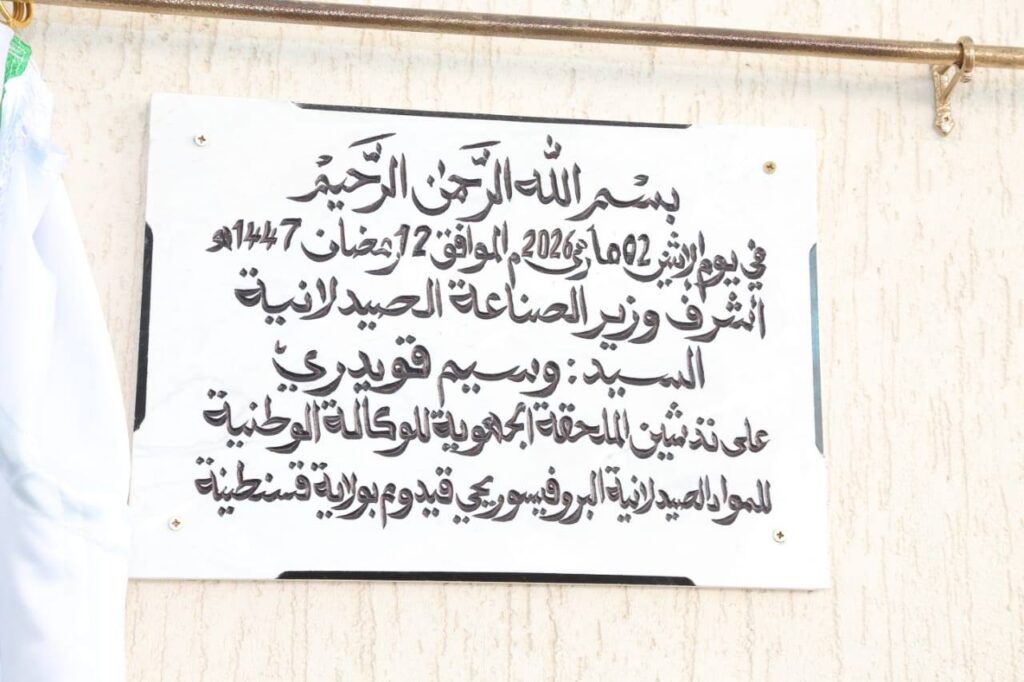 بِسْمِ اللّٰهِ الرَّحْمٰنِ الرَّحِيْمِ
في يوم الإثنين 02 مارس 2026م الموافق 12 رمضان 1447هـ
أشرف وزير الصناعة الصيدلانية
السيد : وسيم قويدري
على تدشين الملحقة الجهوية للوكالة الوطنية
للمواد الصيدلانية البروفيسور يحي قيدوم بولاية قسنطينة